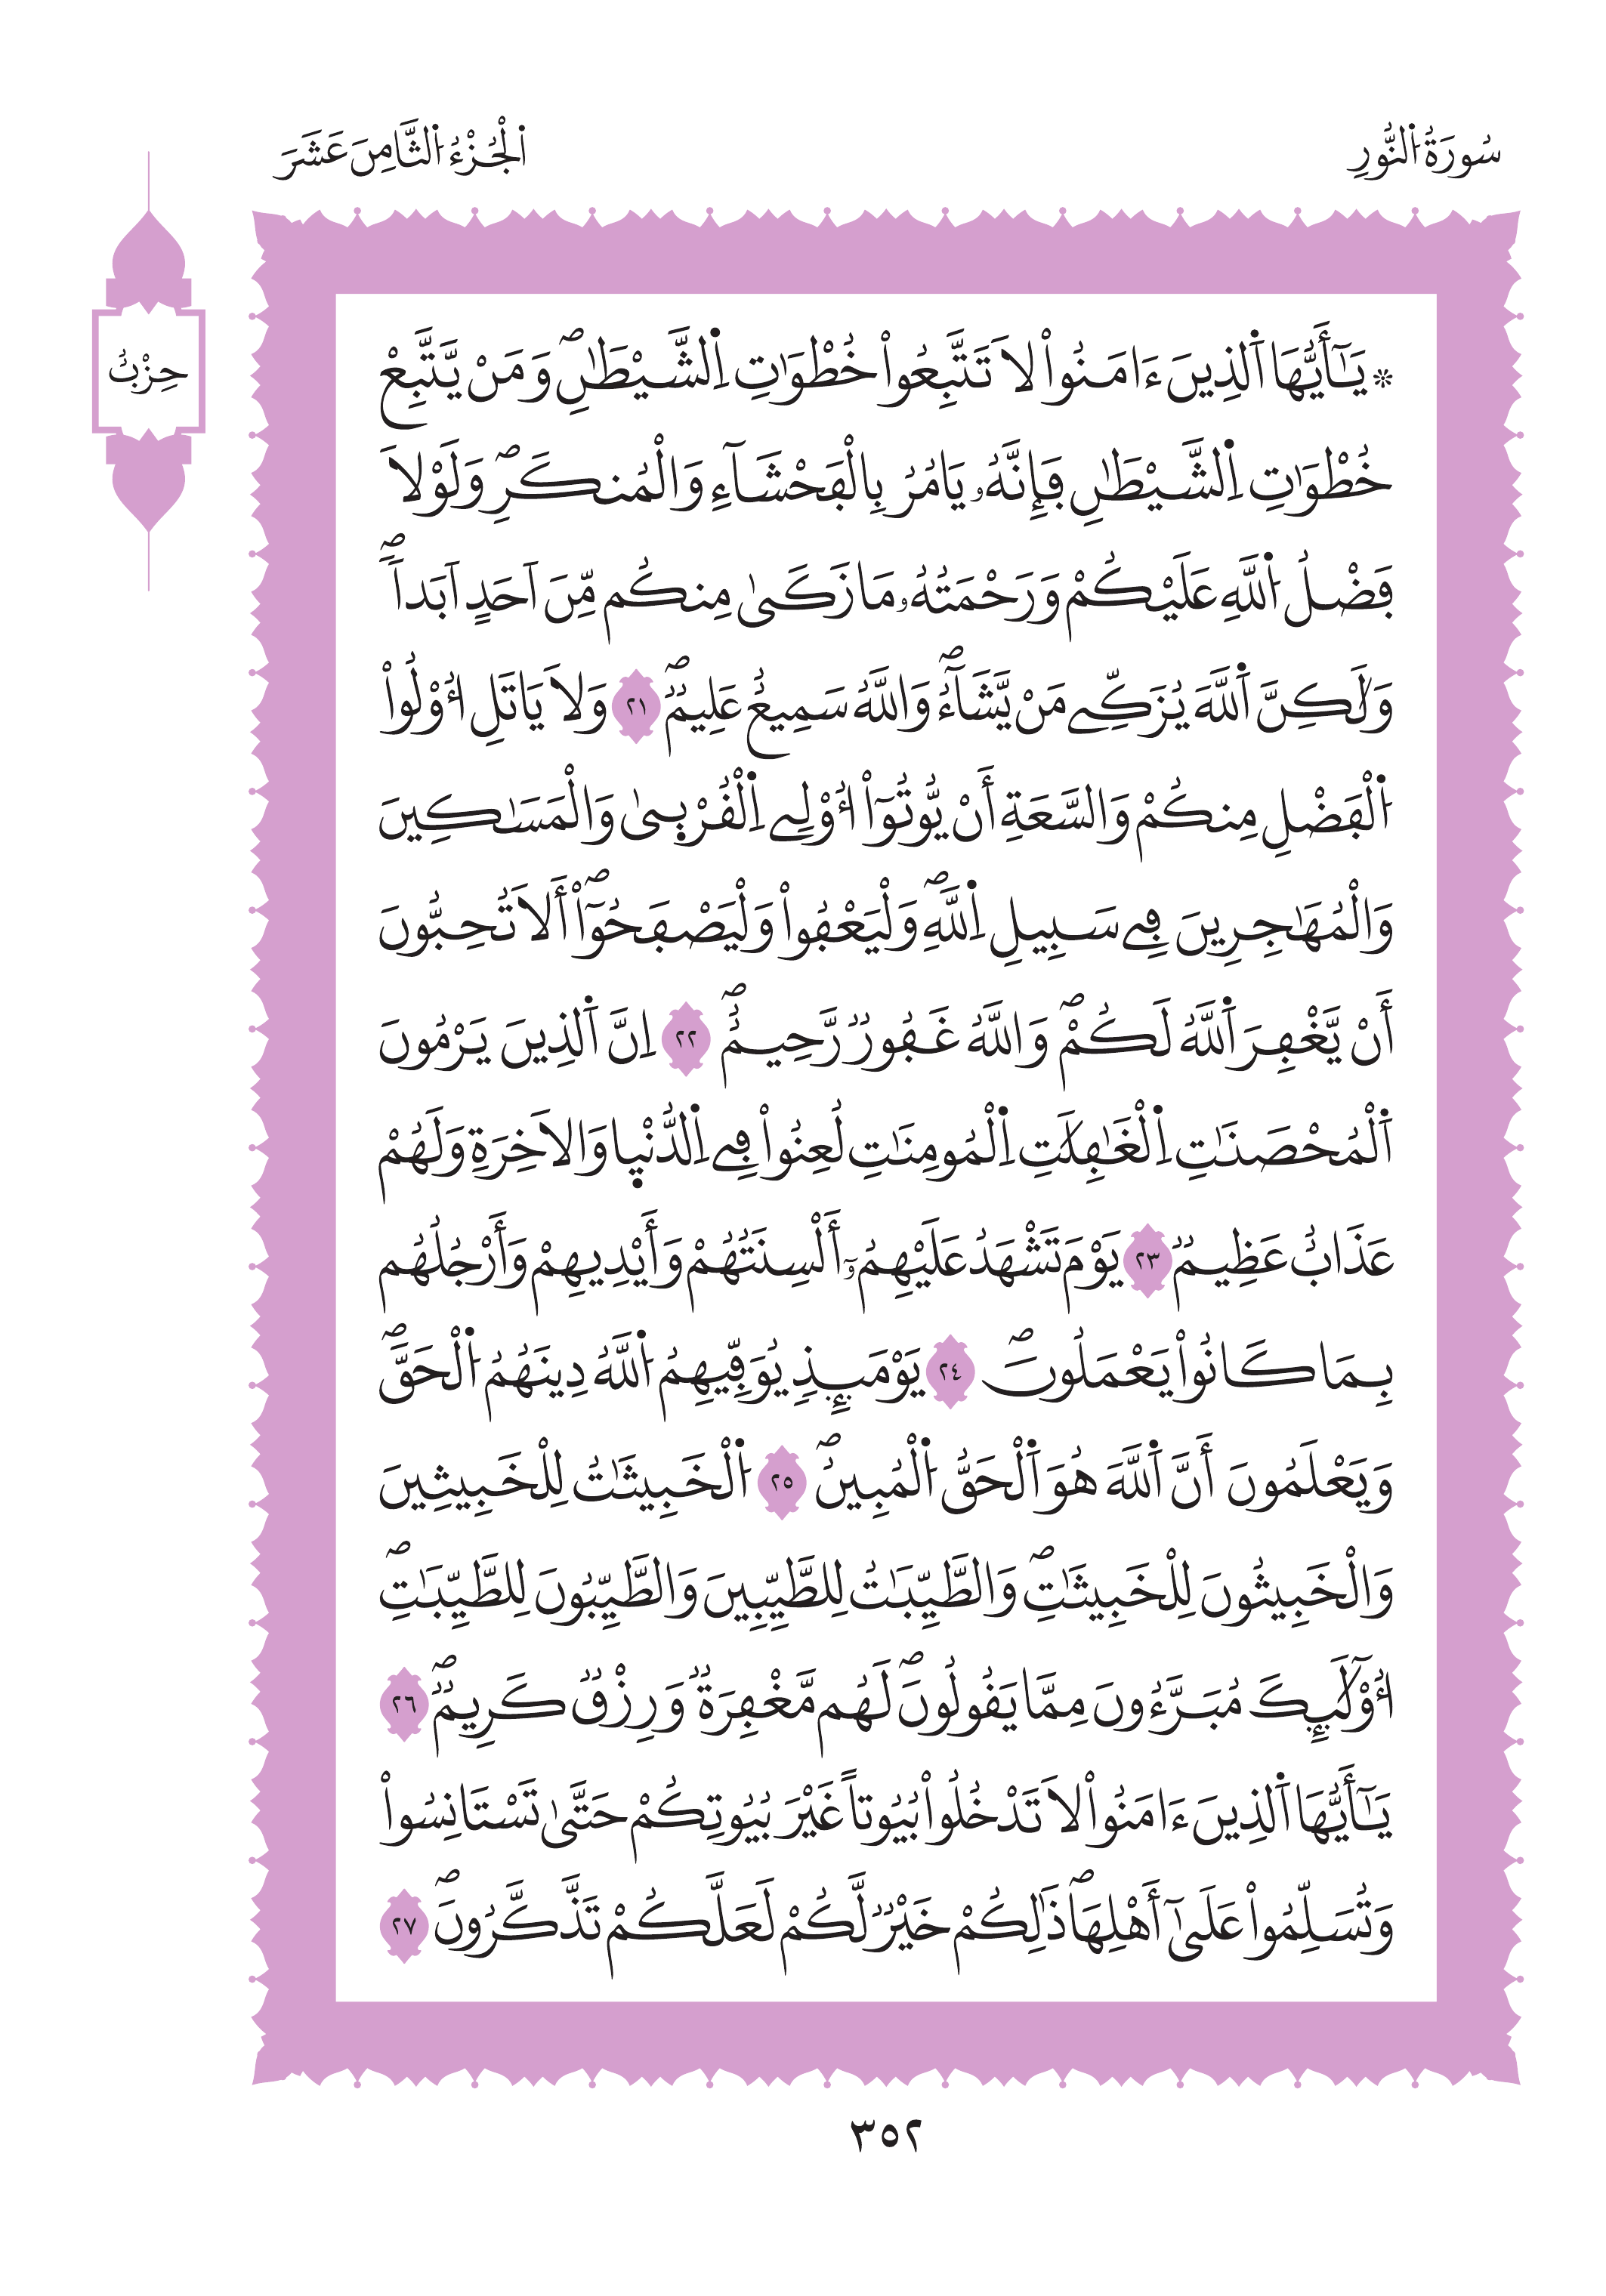 سُورَةُ اُ۬لنُّورِ
اَ۬لْجُزْءُ اُ۬لثَّامِنَ عَشَرَ
حِزْبٌ
۞ يَٰٓأَيُّهَا اَ۬لذِينَ ءَامَنُواْ لَا تَتَّبِعُواْ خُطْوَٰتِ اِ۬لشَّيْطَٰنِۖ وَمَنْ يَّتَّبِعْ
خُطْوَٰتِ اِ۬لشَّيْطَٰنِ فَإِنَّهُۥ يَامُرُ بِالْفَحْشَآءِ وَالْمُنكَرِۖ وَلَوْلَا
فَضْلُ اُ۬للَّهِ عَلَيْكُمْ وَرَحْمَتُهُۥ مَا زَكَىٰ مِنكُم مِّنَ اَحَدٍ اَبَداٗۖ
وَلَٰكِنَّ اَ۬للَّهَ يُزَكِّے مَنْ يَّشَآءُۖ وَاللَّهُ سَمِيعٌ عَلِيمٞۖ ٢١ وَلَا يَاتَلِ أُوْلُواْ
اُ۬لْفَضْلِ مِنكُمْ وَالسَّعَةِ أَنْ يُّوتُوٓاْ أُوْلِے اِ۬لْقُرْب۪ىٰ وَالْمَسَٰكِينَ
وَالْمُهَٰجِرِينَ فِے سَبِيلِ اِ۬للَّهِۖ وَلْيَعْفُواْ وَلْيَصْفَحُوٓاْۖ أَلَا تُحِبُّونَ
أَنْ يَّغْفِرَ اَ۬للَّهُ لَكُمْۖ وَاللَّهُ غَفُورٞ رَّحِيمٌۖ ٢٢ اِنَّ اَ۬لذِينَ يَرْمُونَ
اَ۬لْمُحْصَنَٰتِ اِ۬لْغَٰفِلَٰتِ اِ۬لْمُومِنَٰتِ لُعِنُواْ فِے اِ۬لدُّنْي۪ا وَالَاخِرَةِ وَلَهُمْ
عَذَابٌ عَظِيمٞ ٢٣ يَوْمَ تَشْهَدُ عَلَيْهِمُۥٓ أَلْسِنَتُهُمْ وَأَيْدِيهِمْ وَأَرْجُلُهُم
بِمَا كَانُواْ يَعْمَلُونَۖ ٢٤ يَوْمَئِذٖ يُوَفِّيهِمُ اُ۬للَّهُ دِينَهُمُ اُ۬لْحَقَّۖ
وَيَعْلَمُونَ أَنَّ اَ۬للَّهَ هُوَ اَ۬لْحَقُّ اُ۬لْمُبِينُۖ ٢٥ اُ۬لْخَبِيثَٰتُ لِلْخَبِيثِينَ
وَالْخَبِيثُونَ لِلْخَبِيثَٰتِۖ وَالطَّيِّبَٰتُ لِلطَّيِّبِينَ وَالطَّيِّبُونَ لِلطَّيِّبَٰتِۖ
أُوْلَٰٓئِكَ مُبَرَّءُونَ مِمَّا يَقُولُونَۖ لَهُم مَّغْفِرَةٞ وَرِزْقٞ كَرِيمٞۖ ٢٦
يَٰٓأَيُّهَا اَ۬لذِينَ ءَامَنُواْ لَا تَدْخُلُواْ بُيُوتاً غَيْرَ بُيُوتِكُمْ حَتَّىٰ تَسْتَانِسُواْ
وَتُسَلِّمُواْ عَلَىٰٓ أَهْلِهَاۖ ذَٰلِكُمْ خَيْرٞ لَّكُمْ لَعَلَّكُمْ تَذَّكَّرُونَۖ ٢٧
٣٥٢